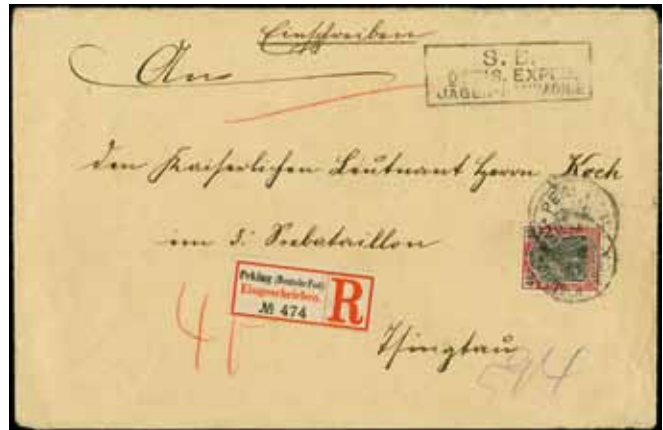 Einschreiben
An
S. B.
OSTAS. EXPED.
JÄGER-KOMPAGNIE
den Kaiserlichen Leutnant Herrn Koch
im 3. Seebataillon
Peking (Deutsche Post)
Eingeschrieben.
№ 474
R
Tsingtau
594